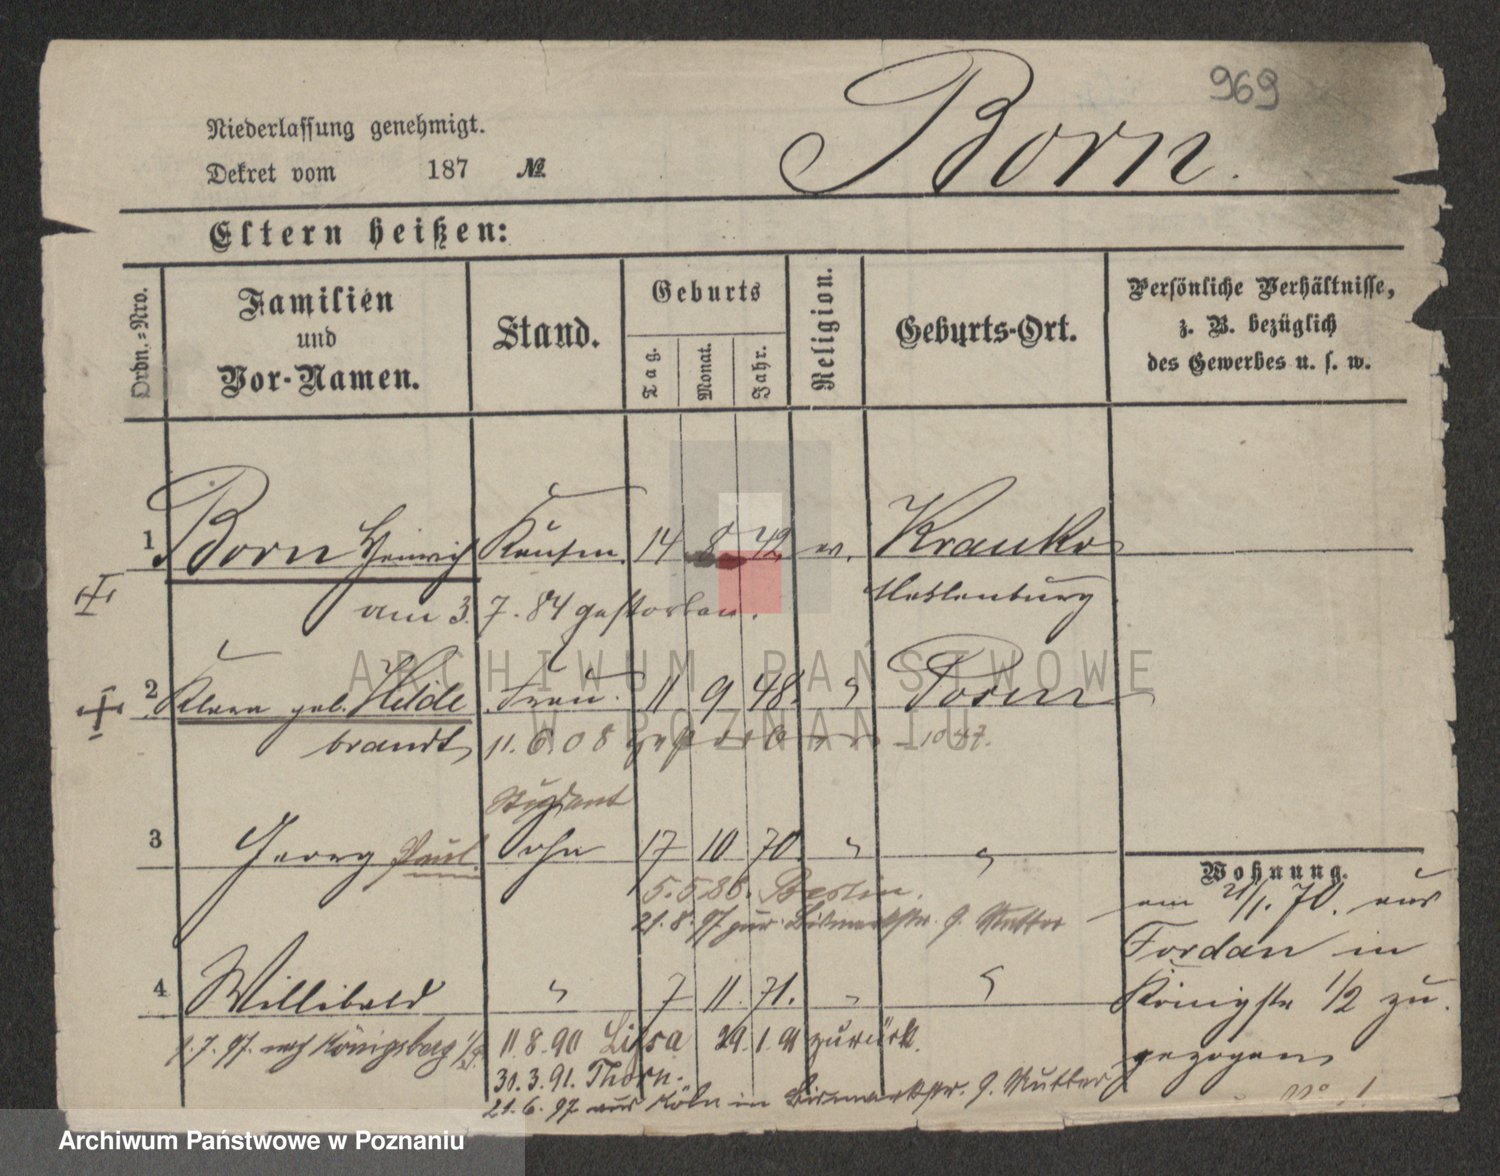 969
Born.
Niederlassung genehmigt.
Dekret vom 187 №
Eltern heißen:
Ordn.-Nro.
Familien und Vor-Namen.
Stand.
Geburts
Tag.
Monat.
Jahr.
Religion.
Geburts-Ort.
Persönliche Verhältnisse,
z. B. bezüglich
des Gewerbes u. s. w.
1 Born Heinrich Kaufm. 14 8 42 ev.
am 3. 7. 84 gestorben.
Meklenburg
2 Klara geb. Hilde Frau 11 9 48. " Posen
brandt 11. 6. 08 gestorben
Student
3 Georg Paul Sohn 17 10 70. " "
5. 5. 86. Berlin.
21. 8. 97 zur Bismarckstr. 9. Mutter
Wohnung.
am 21/1. 70. aus
Fordan in
Königstr 1/2 zu
gezogen
4 Willibald " 7 11. 71. " "
1. 7. 97. nach Königsberg
11. 8. 90 Lissa 29. 1. 91 zurück.
30. 3. 91. Thorn.
21. 6. 97 aus Köln in Bismarckstr. 9. Mutter
ARCHIWUM PAŃSTWOWE
W POZNANIU
Archiwum Państwowe w Poznaniu